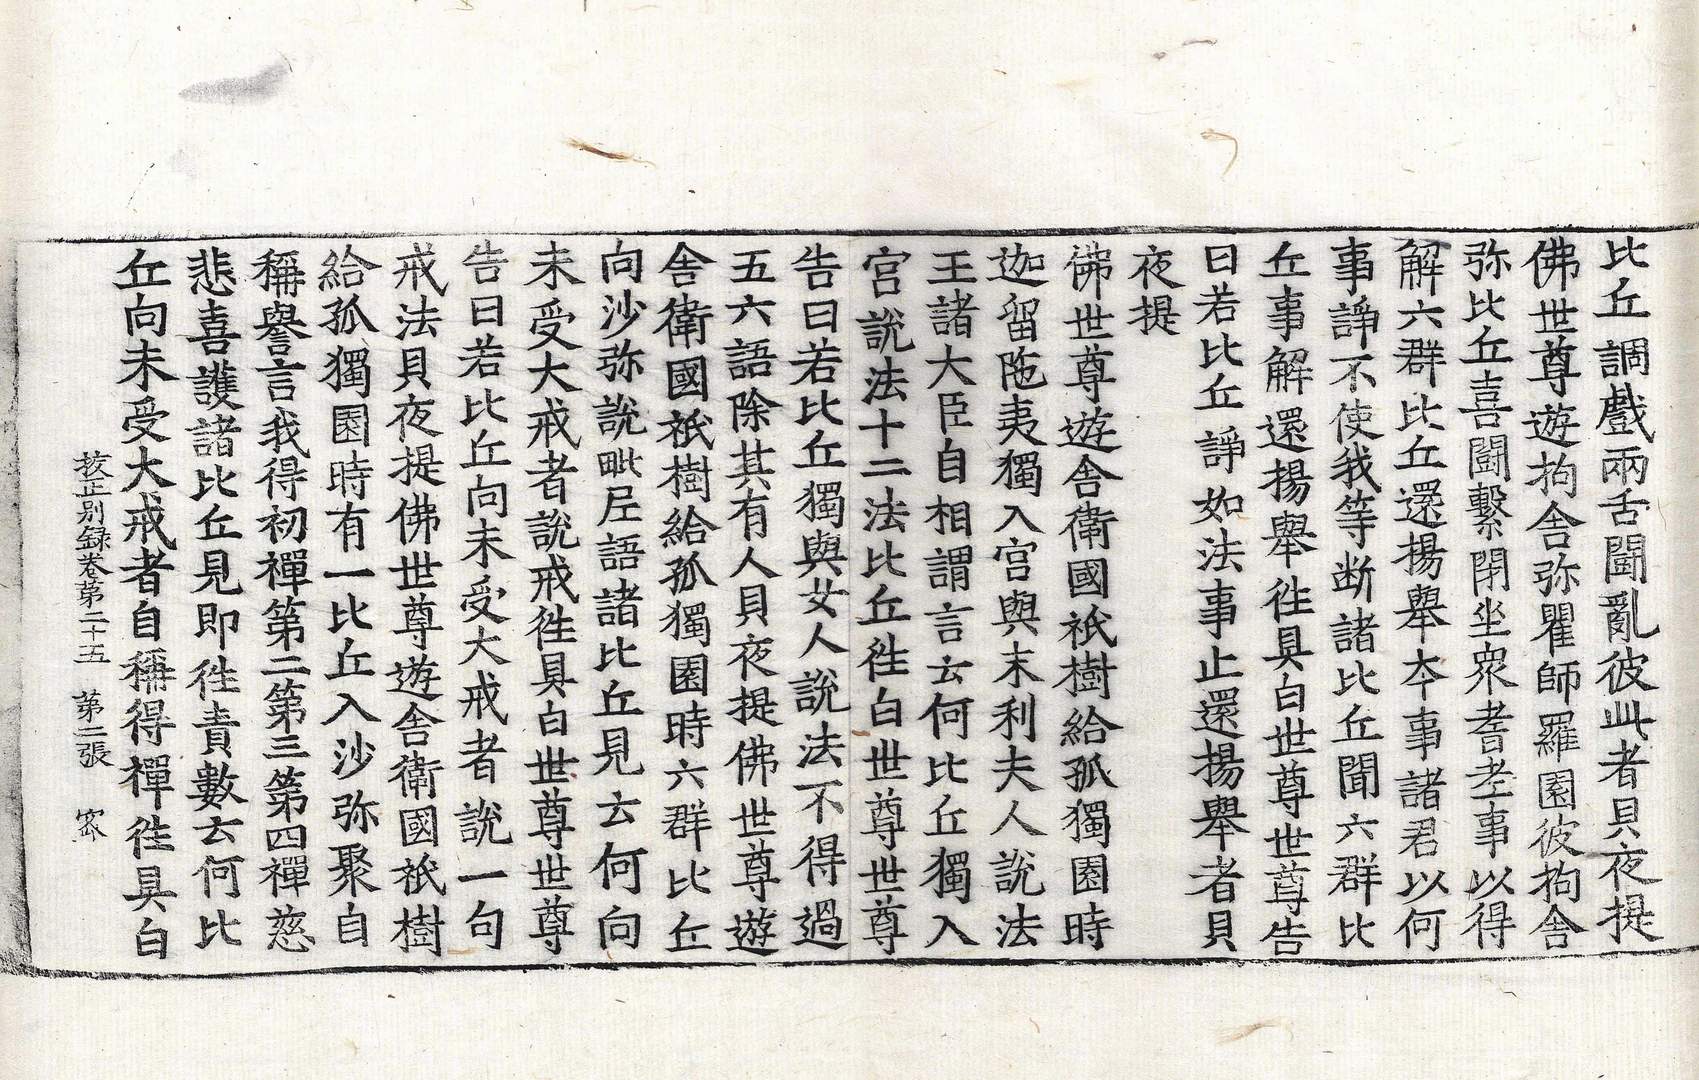 比丘調戲兩舌鬪亂彼此者貝夜提
佛世尊遊拘舍弥瞿師羅園彼拘舍
弥比丘喜鬪繫閉坐衆耆老事以得
解六群比丘還揚舉本事諸君以何
事諍不使我等断諸比丘聞六群比
丘事解還揚舉徃具白世尊世尊告
曰若比丘諍如法事止還揚舉者貝
夜提
佛世尊遊舍衛國祇樹給孤獨園時
迦留陁夷獨入宮與末利夫人說法
王諸大臣自相謂言云何比丘獨入
宮說法十二法比丘徃白世尊世尊
告曰若比丘獨與女人說法不得過
五六語除其有人貝夜提佛世尊遊
舍衛國祇樹給孤獨園時六群比丘
向沙弥說毗尼語諸比丘見云何向
未受大戒者說戒徃具白世尊世尊
告曰若比丘向未受大戒者說一句
戒法貝夜提佛世尊遊舍衛國祇樹
給孤獨園時有一比丘入沙弥聚自
稱譽言我得初禪第二第三第四禪慈
悲喜護諸比丘見即徃責數云何比
丘向未受大戒者自稱得禪徃具白
挍正別錄卷第二十五 第二張 密